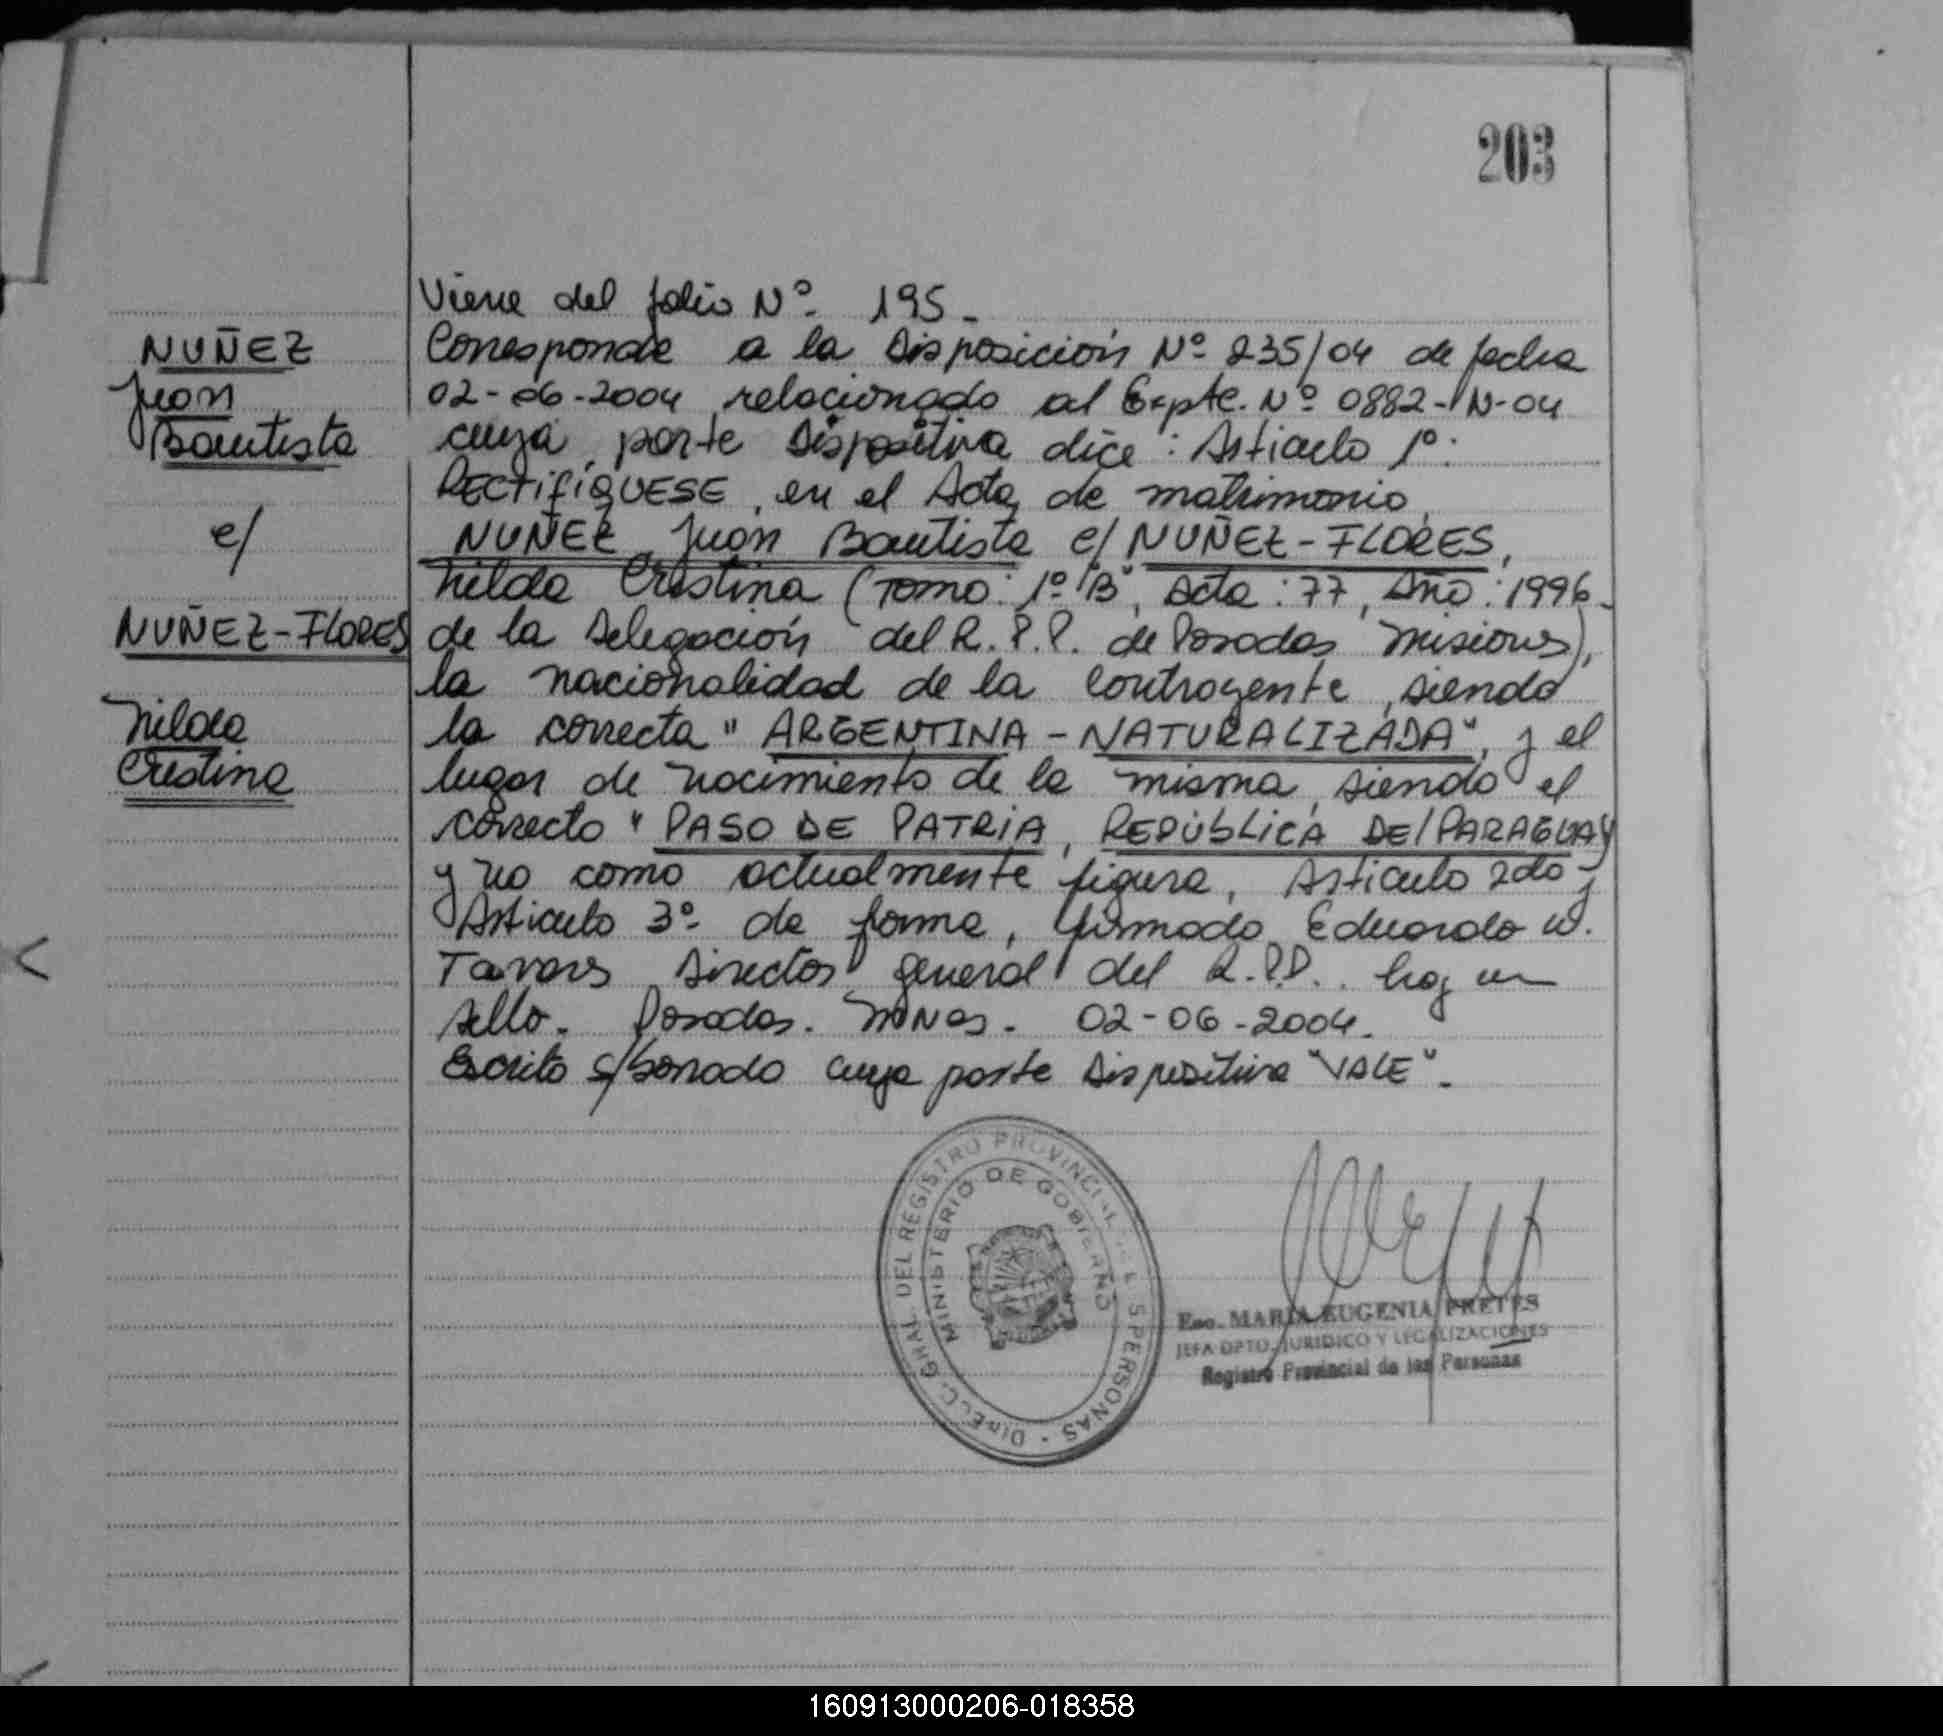 203
Viene del folio Nº 195-
NUÑEZ
Juan
Bautista
c/
NUÑEZ-FLORES
Nilda
Cristina
Corresponde a la Disposición Nº 235/04 de fecha
02-06-2004 relacionado al Expte. Nº 0882-N-04
cuya parte Dispositiva dice: Articulo 1º:
RECTIFÍQUESE, en el Acta de matrimonio
NUÑEZ, Juan Bautista c/ NUÑEZ-FLORES,
Nilda Cristina (Tomo: 1º "B", Acta: 77, Año: 1996-
de la Delegación del R.P.P. de Posadas Misiones),
la nacionalidad de la contrayente, siendo
la correcta "ARGENTINA-NATURALIZADA", y el
lugar de nacimiento de la misma, siendo el
correcto "PASO DE PATRIA, REPÚBLICA DEL PARAGUAY
y no como actualmente figura, Articulo 2do y
Articulo 3º de forma, firmado Eduardo W.
Tavares Director general del R.P.P. hay un
sello. Posadas. Mnes. 02-06-2004.
Escrito s/borrado cuya parte Dispositiva "VALE"-
DIREC. GRAL. DEL REGISTRO PROVINCIAL DE L S PERSONAS
MINISTERIO DE GOBIERNO
Esc. MARIA EUGENIA PRETES
JEFA DPTO. JURIDICO Y LEGALIZACIONES
Registro Provincial de las Personas
160913000206-018358